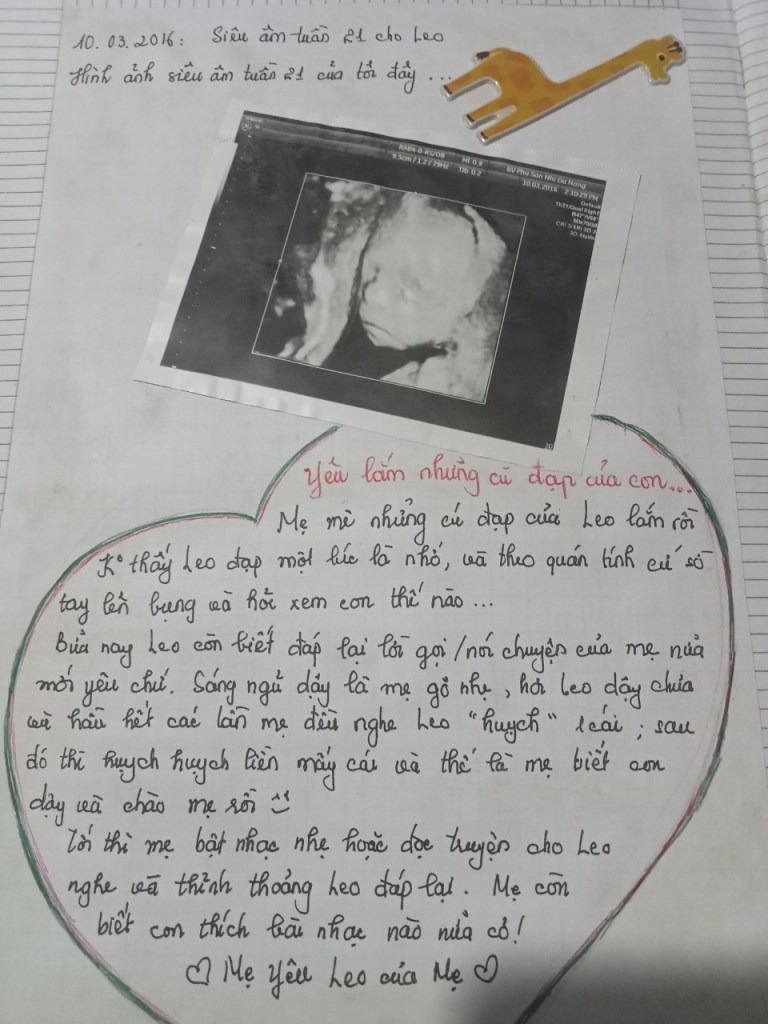 10.03.2016: Siêu âm tuần 21 cho Leo
Hình ảnh siêu âm tuần 21 của tôi đây...
RAB4-8-RS/OB MI 0.9 BV Phu San Nhi Da Nang
9.5cm / 1.2 / 79Hz TIb 0.2 10.03.2016 2:10:29 PM
Default
Yêu lắm những cú đạp của con...
Mẹ mê những cú đạp của Leo lắm rồi
K° thấy Leo đạp một lúc là nhớ, và theo quán tính cứ sờ
tay lên bụng và hỏi xem con thế nào...
Bữa nay Leo còn biết đáp lại lời gọi/nói chuyện của mẹ nữa
mới yêu chứ. Sáng ngủ dậy là mẹ gõ nhẹ, hỏi Leo dậy chưa
và hầu hết các lần mẹ đều nghe Leo "huỵch" 1 cái; sau
đó thì huỵch huỵch liền mấy cái và thế là mẹ biết con
dậy và chào mẹ rồi
Tối thì mẹ bật nhạc nhẹ hoặc đọc truyện cho Leo
nghe và thỉnh thoảng Leo đáp lại. Mẹ còn
biết con thích bài nhạc nào nữa cơ!
♡ Mẹ yêu Leo của Mẹ ♡